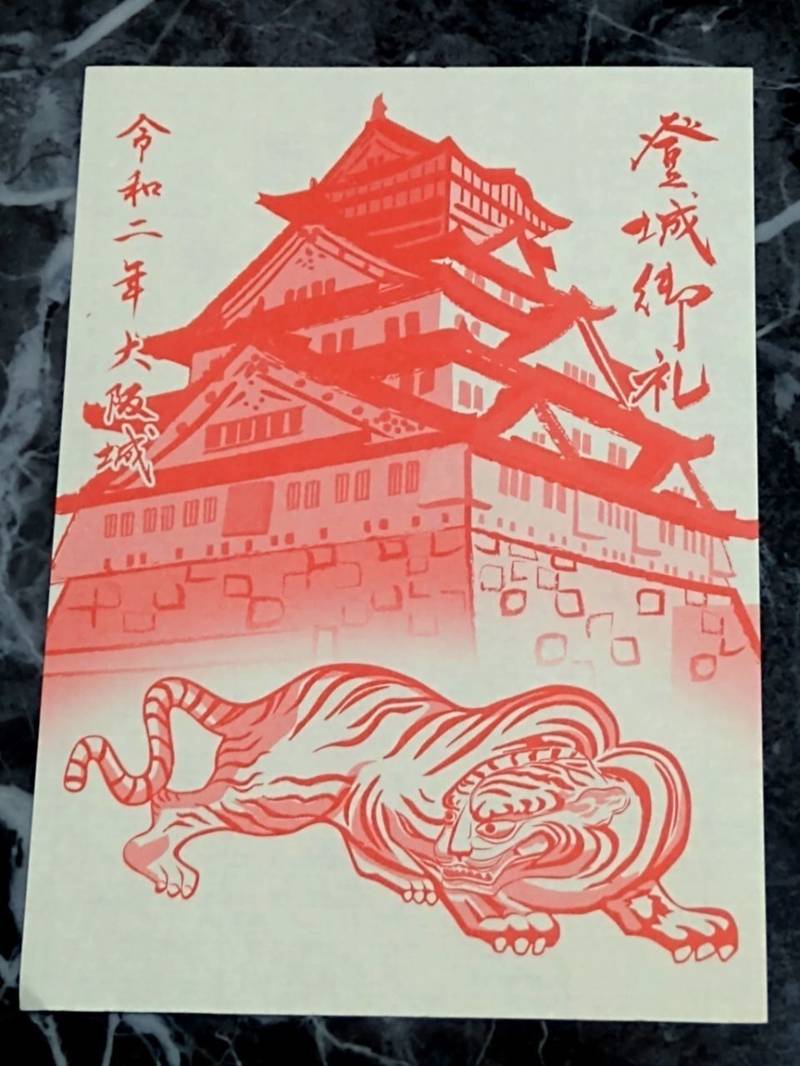 登城御礼
令和二年大阪城